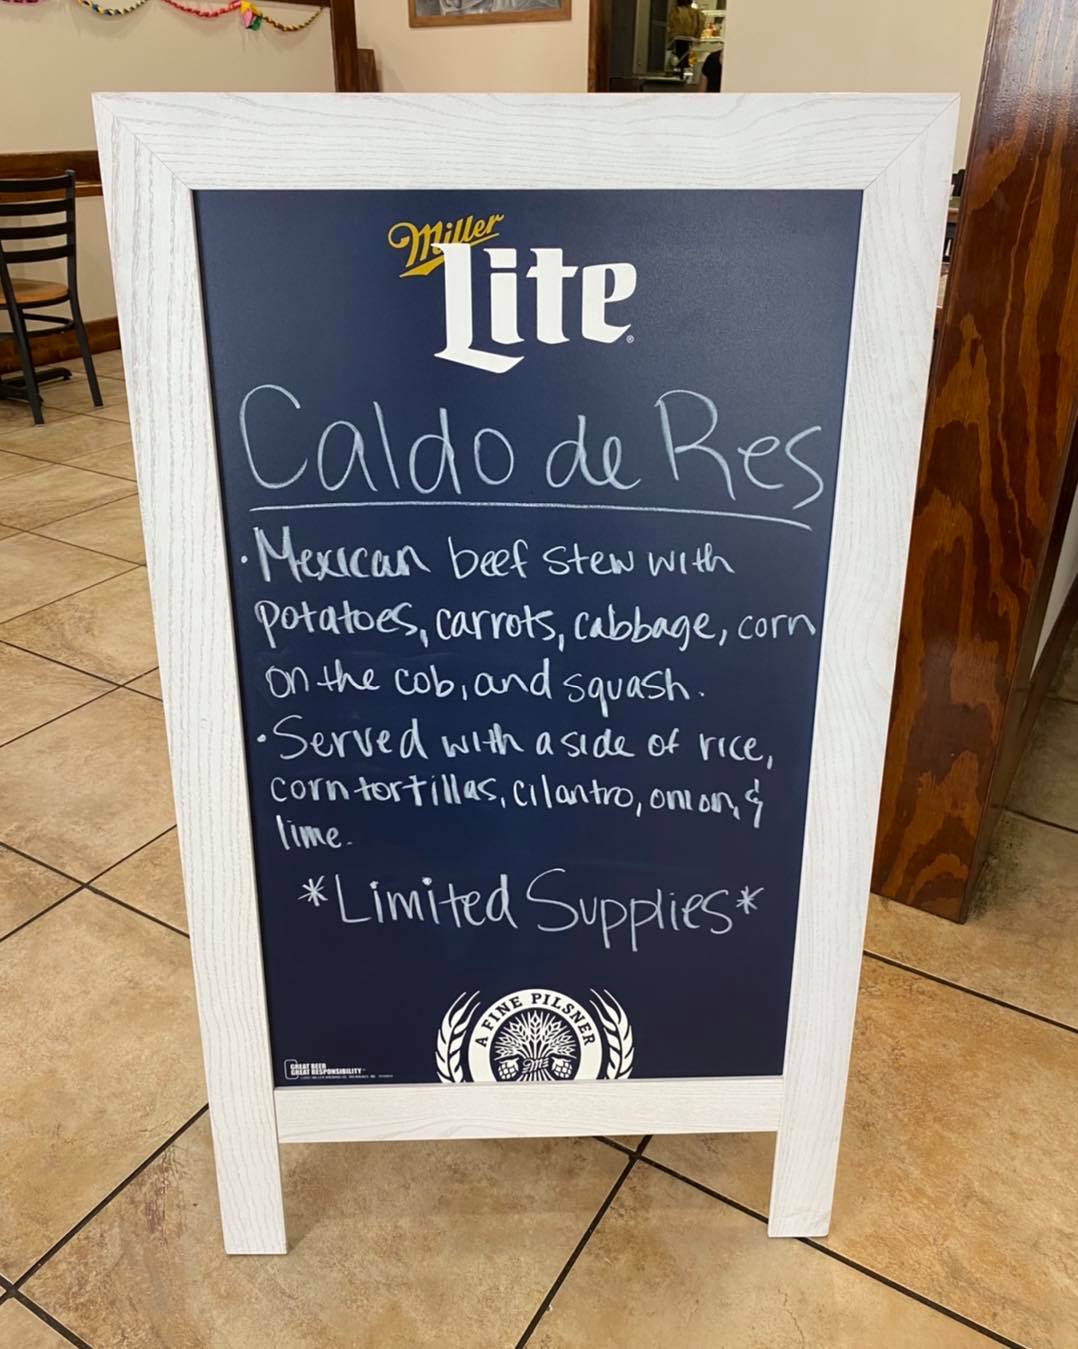 Miller
Lite
Caldo de Res
· Mexican beef stew with
potatoes, carrots, cabbage, corn
on the cob, and squash.
· Served with a side of rice,
corn tortillas, cilantro, onion, &
lime.
*Limited Supplies*
A FINE PILSNER
GREAT BEER
GREAT RESPONSIBILITY